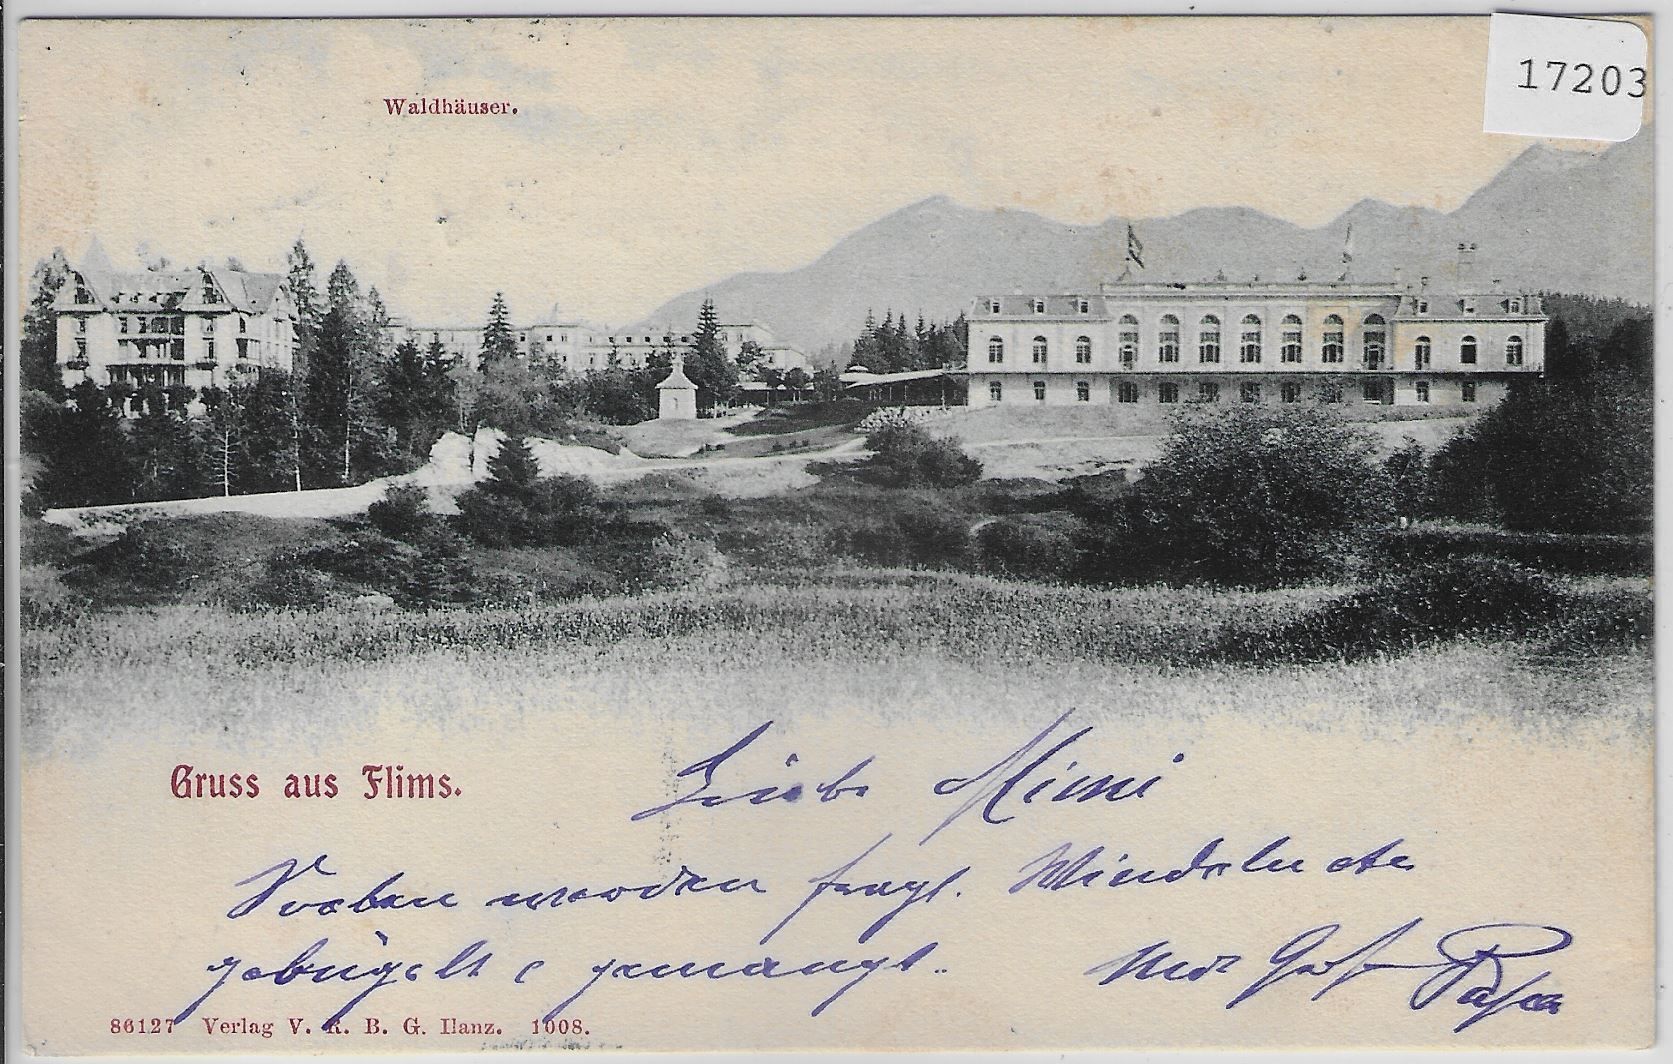 17203
Waldhäuser.
Gruss aus Flims.
Liebe Mimi
Soeben werden fragl. Windeln etc
gebügelt & gemangt.
86127 Verlag V. R. B. G. Ilanz. 1008.